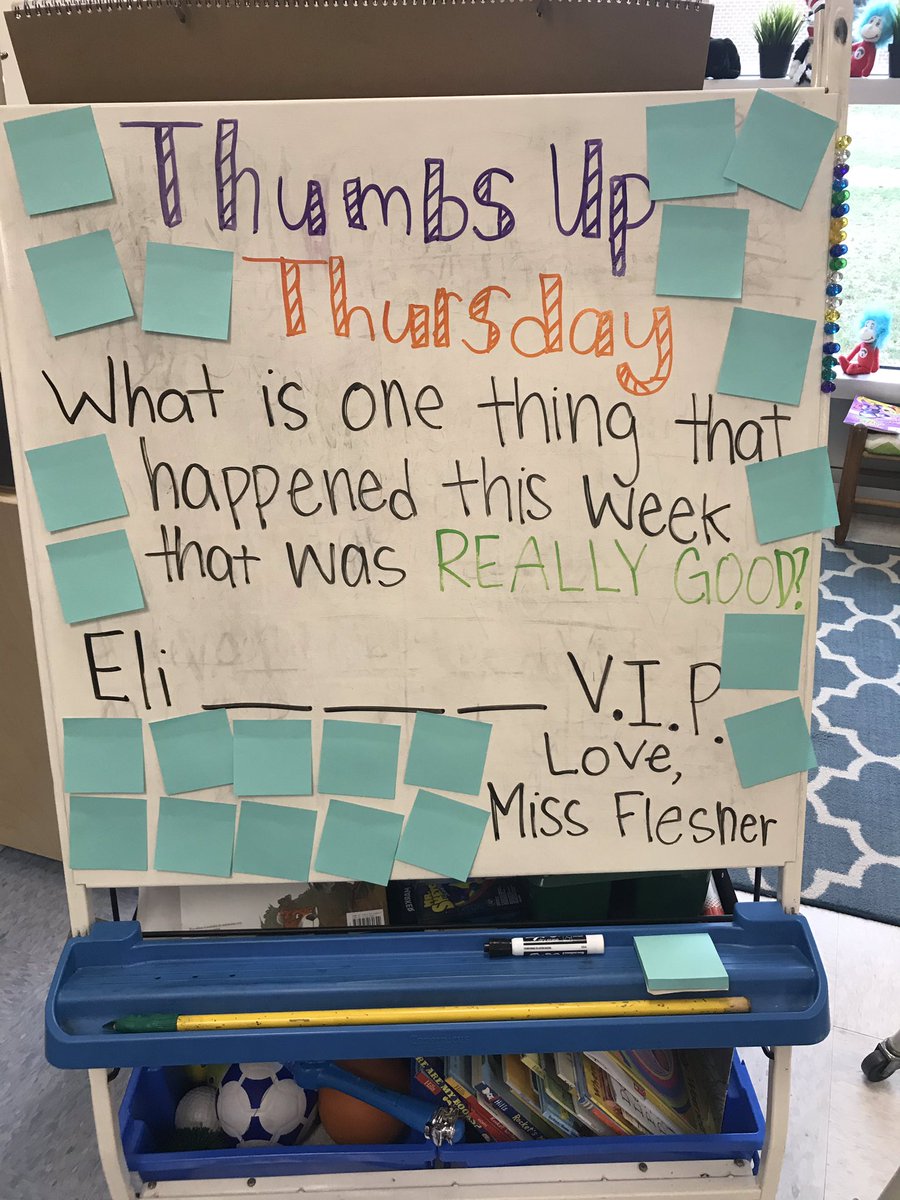 Thumbs Up
Thursday
What is one thing that
happened this week
that was REALLY GOOD?
Eli ___ ___ ___ V.I.P.
Love,
Miss Flesner